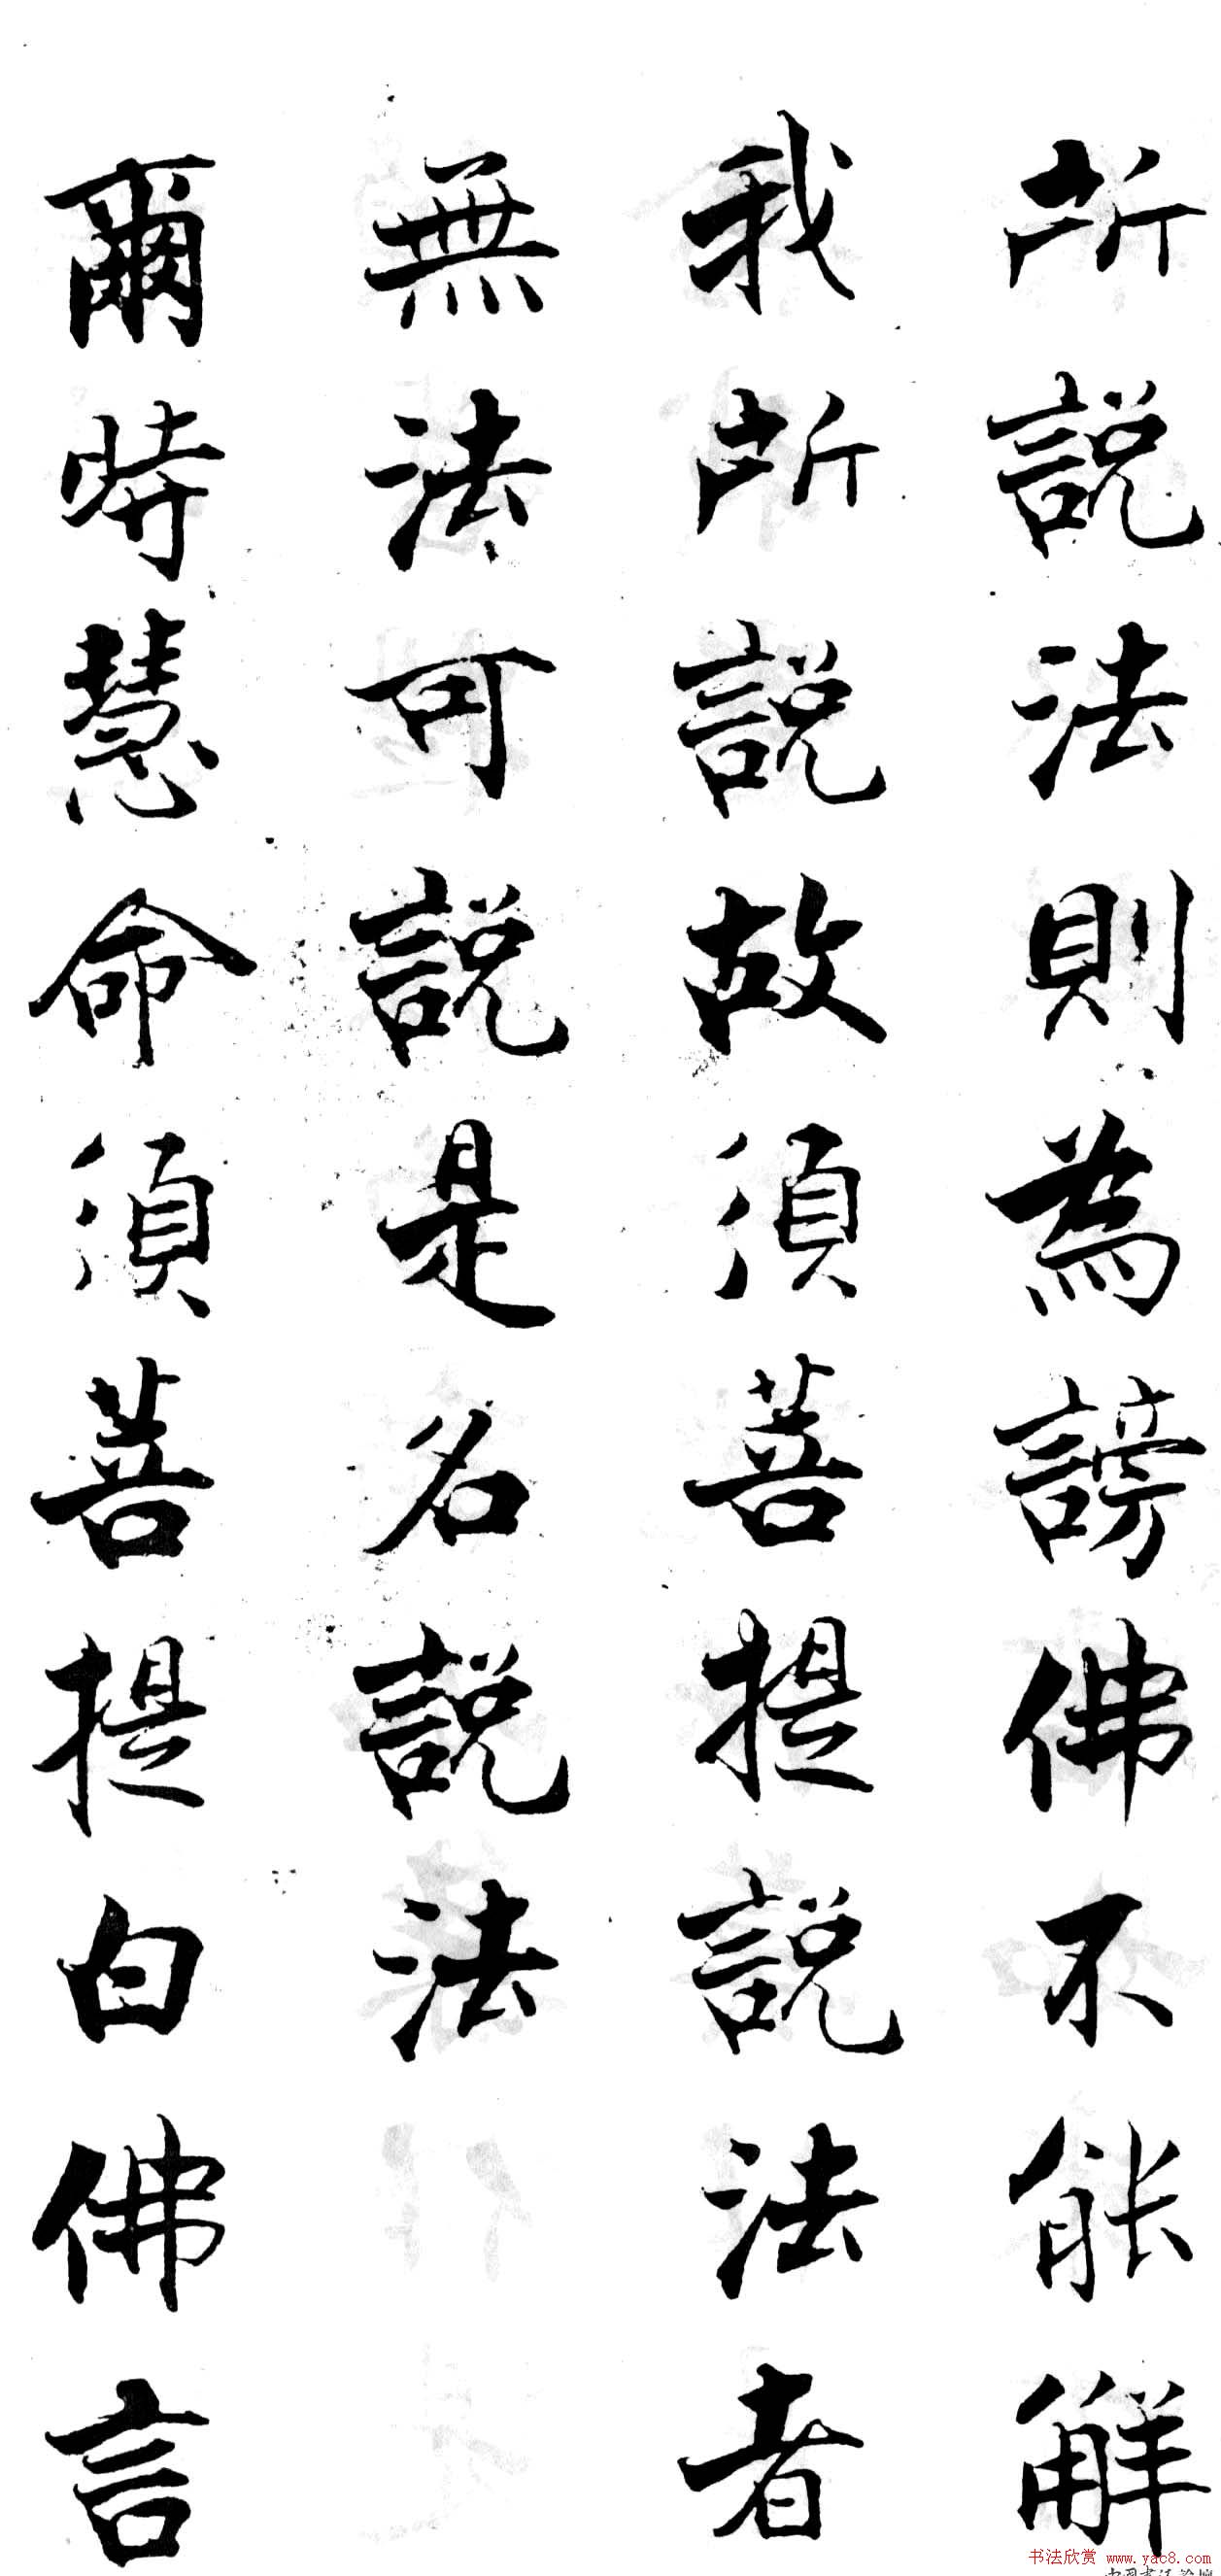 所說法則為謗佛不能解
我所說故須菩提說法者
無法可說是名說法
爾時慧命須菩提白佛言
书法欣赏 www.yac8.com